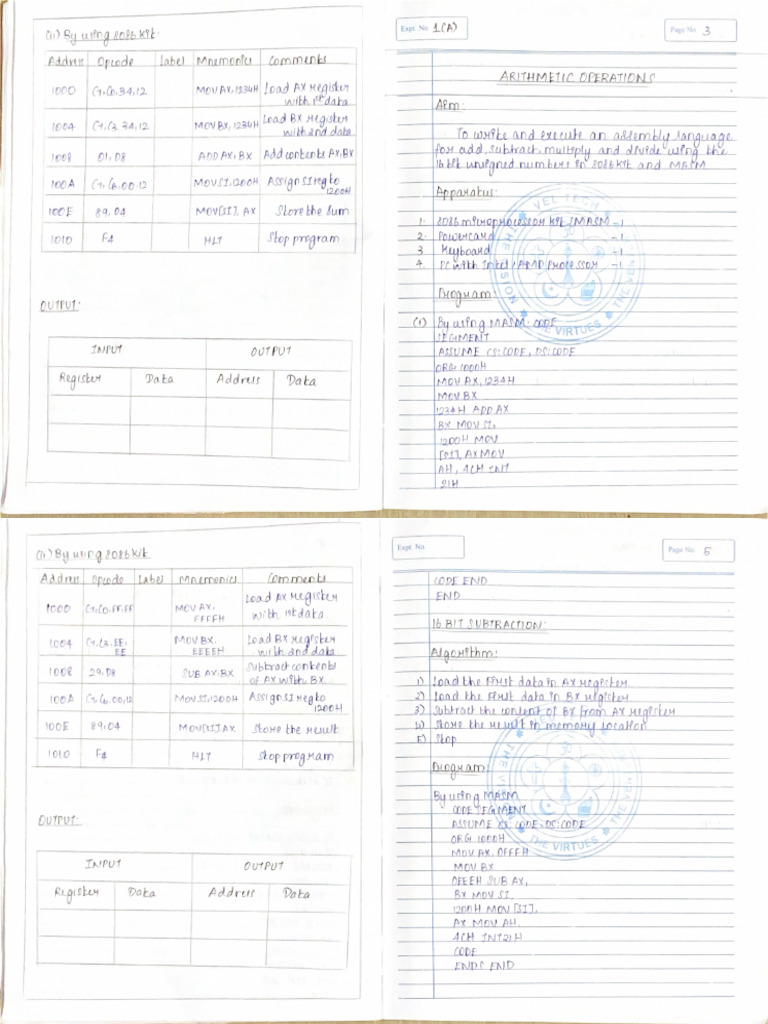 (ii) By using 8086 kit:
Address Opcode Label Mnemonics Comments
1000 C7,C0,34,12 MOV AX,1234H Load AX register with 1st data
1004 C7,C3,34,12 MOV BX,1234H Load BX register with 2nd data
1008 01,D8 ADD AX,BX Add contents AX,BX
100A C7,C6,00,12 MOV SI,1200H Assign SI reg to 1200H
100E 89,04 MOV[SI], AX Store the Sum
1010 F4 HLT Stop program
OUTPUT:
INPUT OUTPUT
Register Data Address Data
Expt. No. 1(A)
Page No. 3
ARITHMETIC OPERATIONS
Aim:
To write and execute an assembly language
for add, subtract, multiply and divide using the
16 bit unsigned numbers in 8086 kit and MASM
Apparatus:
1. 8086 microprocessor kit /MASM -1
2. Powercard -1
3 Keyboard -1
4. PC with Intel / AMD PROCESSOR -1
Program:
(i) By using MASM: CODE
SEGMENT
ASSUME CS:CODE, DS:CODE
ORG:1000H
MOV AX,1234H
MOV BX
1234H ADD AX
BX MOV SI,
1200H MOV
[SI], AX MOV
AH, 4CH INT
21H
VEL TECH
THE VISION
THE VIRTUES
(ii) By using 8086 kit
Address Opcode Label Mnemonics Comments
1000 C7,C0,FF,FF MOV AX, FFFFH Load AX register with 1st data
1004 C7,C3,EE, EE MOV BX, EEEEH Load BX register with 2nd data
1008 29,D8 SUB AX,BX Subtract contents of AX with BX
100A C7,C6,00,12 MOV SI,1200H Assign SI reg to 1200H
100E 89,04 MOV[SI] AX Store the result
1010 F4 HLT Stop program
OUTPUT:
INPUT OUTPUT
Register Data Address Data
Expt. No.
Page No. 5
CODE END
END
16 BIT SUBTRACTION:
Algorithm:
1) Load the First data in AX register
2) Load the First data in BX register
3) Subtract the content of BX from AX register
4) Store the result in memory location
5) Stop
Program:
By using MASM
CODE SEGMENT
ASSUME CS: CODE, DS:CODE
ORG 1000H
MOV AX, OFFFH
MOV BX
OEEEH SUB AX,
BX MOV SI,
1200H MOV [SI],
AX MOV AH,
4CH INT21H
CODE
ENDS END
THE VIRTUES